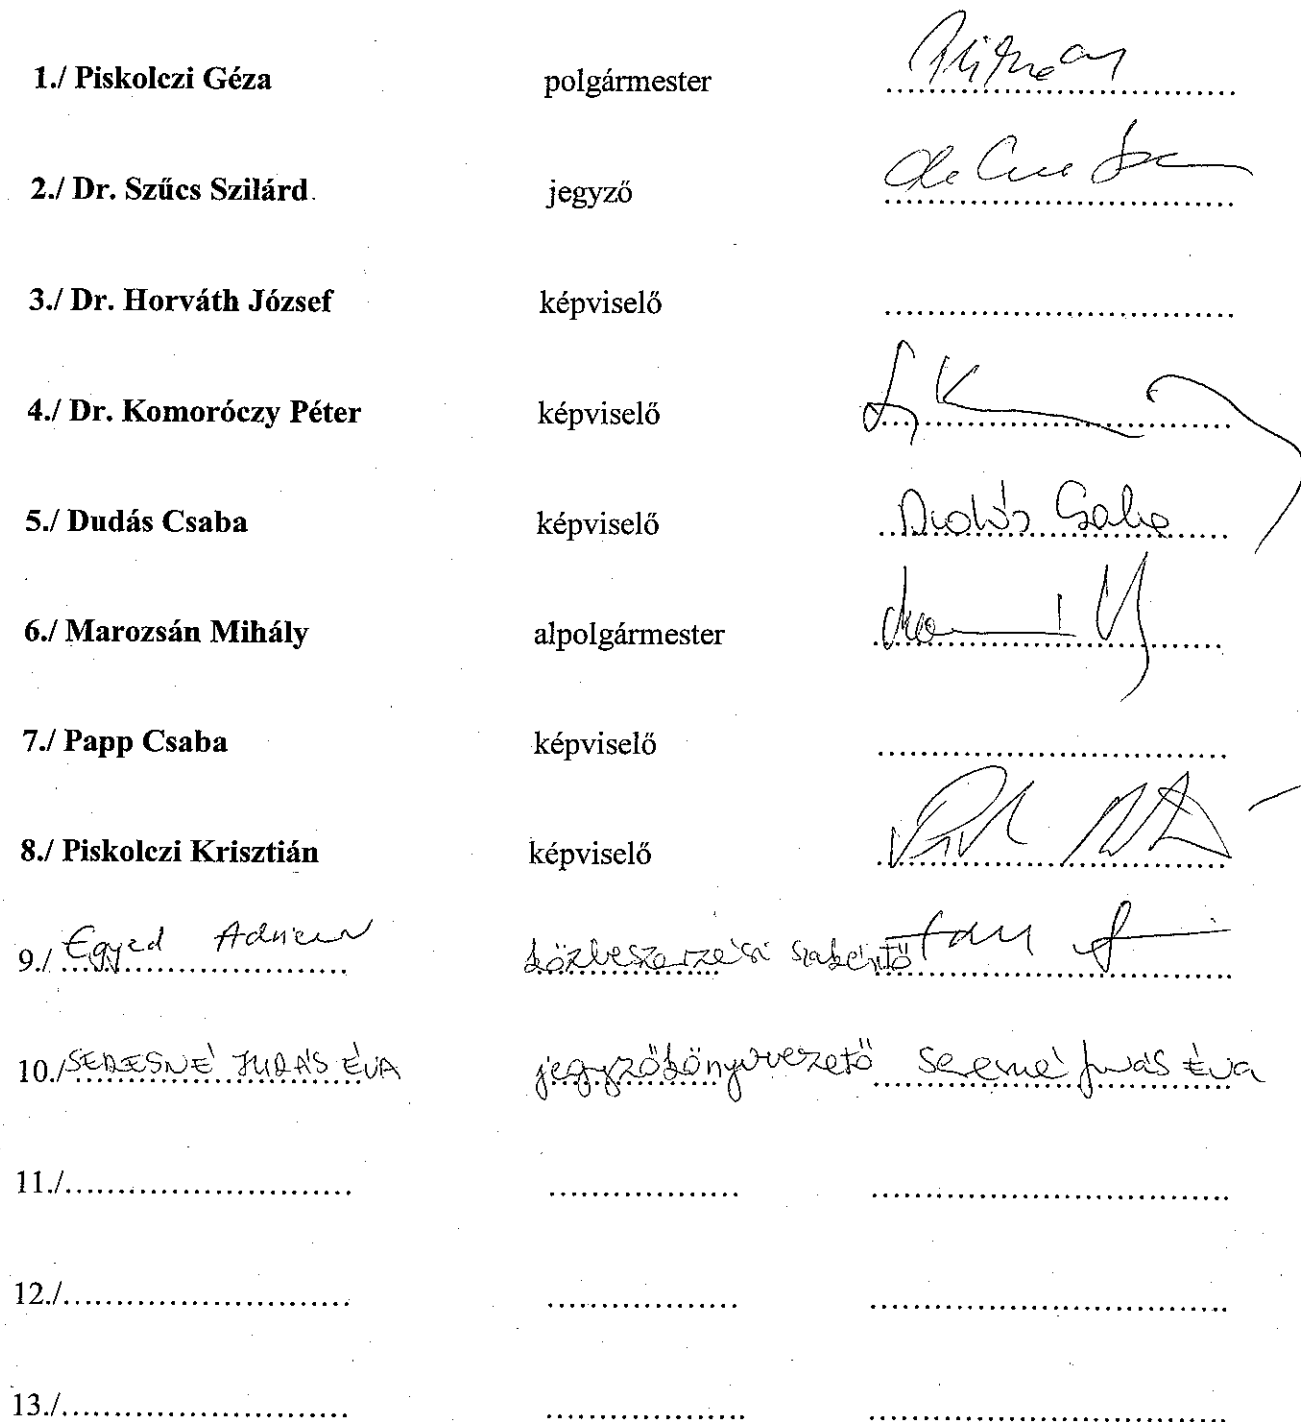 1./ Piskolczi Géza polgármester ..............................
2./ Dr. Szűcs Szilárd jegyző ..............................
3./ Dr. Horváth József képviselő ..............................
4./ Dr. Komoróczy Péter képviselő ..............................
5./ Dudás Csaba képviselő Dudás Csaba
6./ Marozsán Mihály alpolgármester ..............................
7./ Papp Csaba képviselő ..............................
8./ Piskolczi Krisztián képviselő ..............................
9./ Egyed Adrienn közbeszerzési szakértő
10./ SERESNÉ JUHÁS ÉVA jegyzőkönyvvezető Seresné Juhás Éva
11./........................... .................. ..............................
12./........................... .................. ..............................
13./........................... .................. ..............................